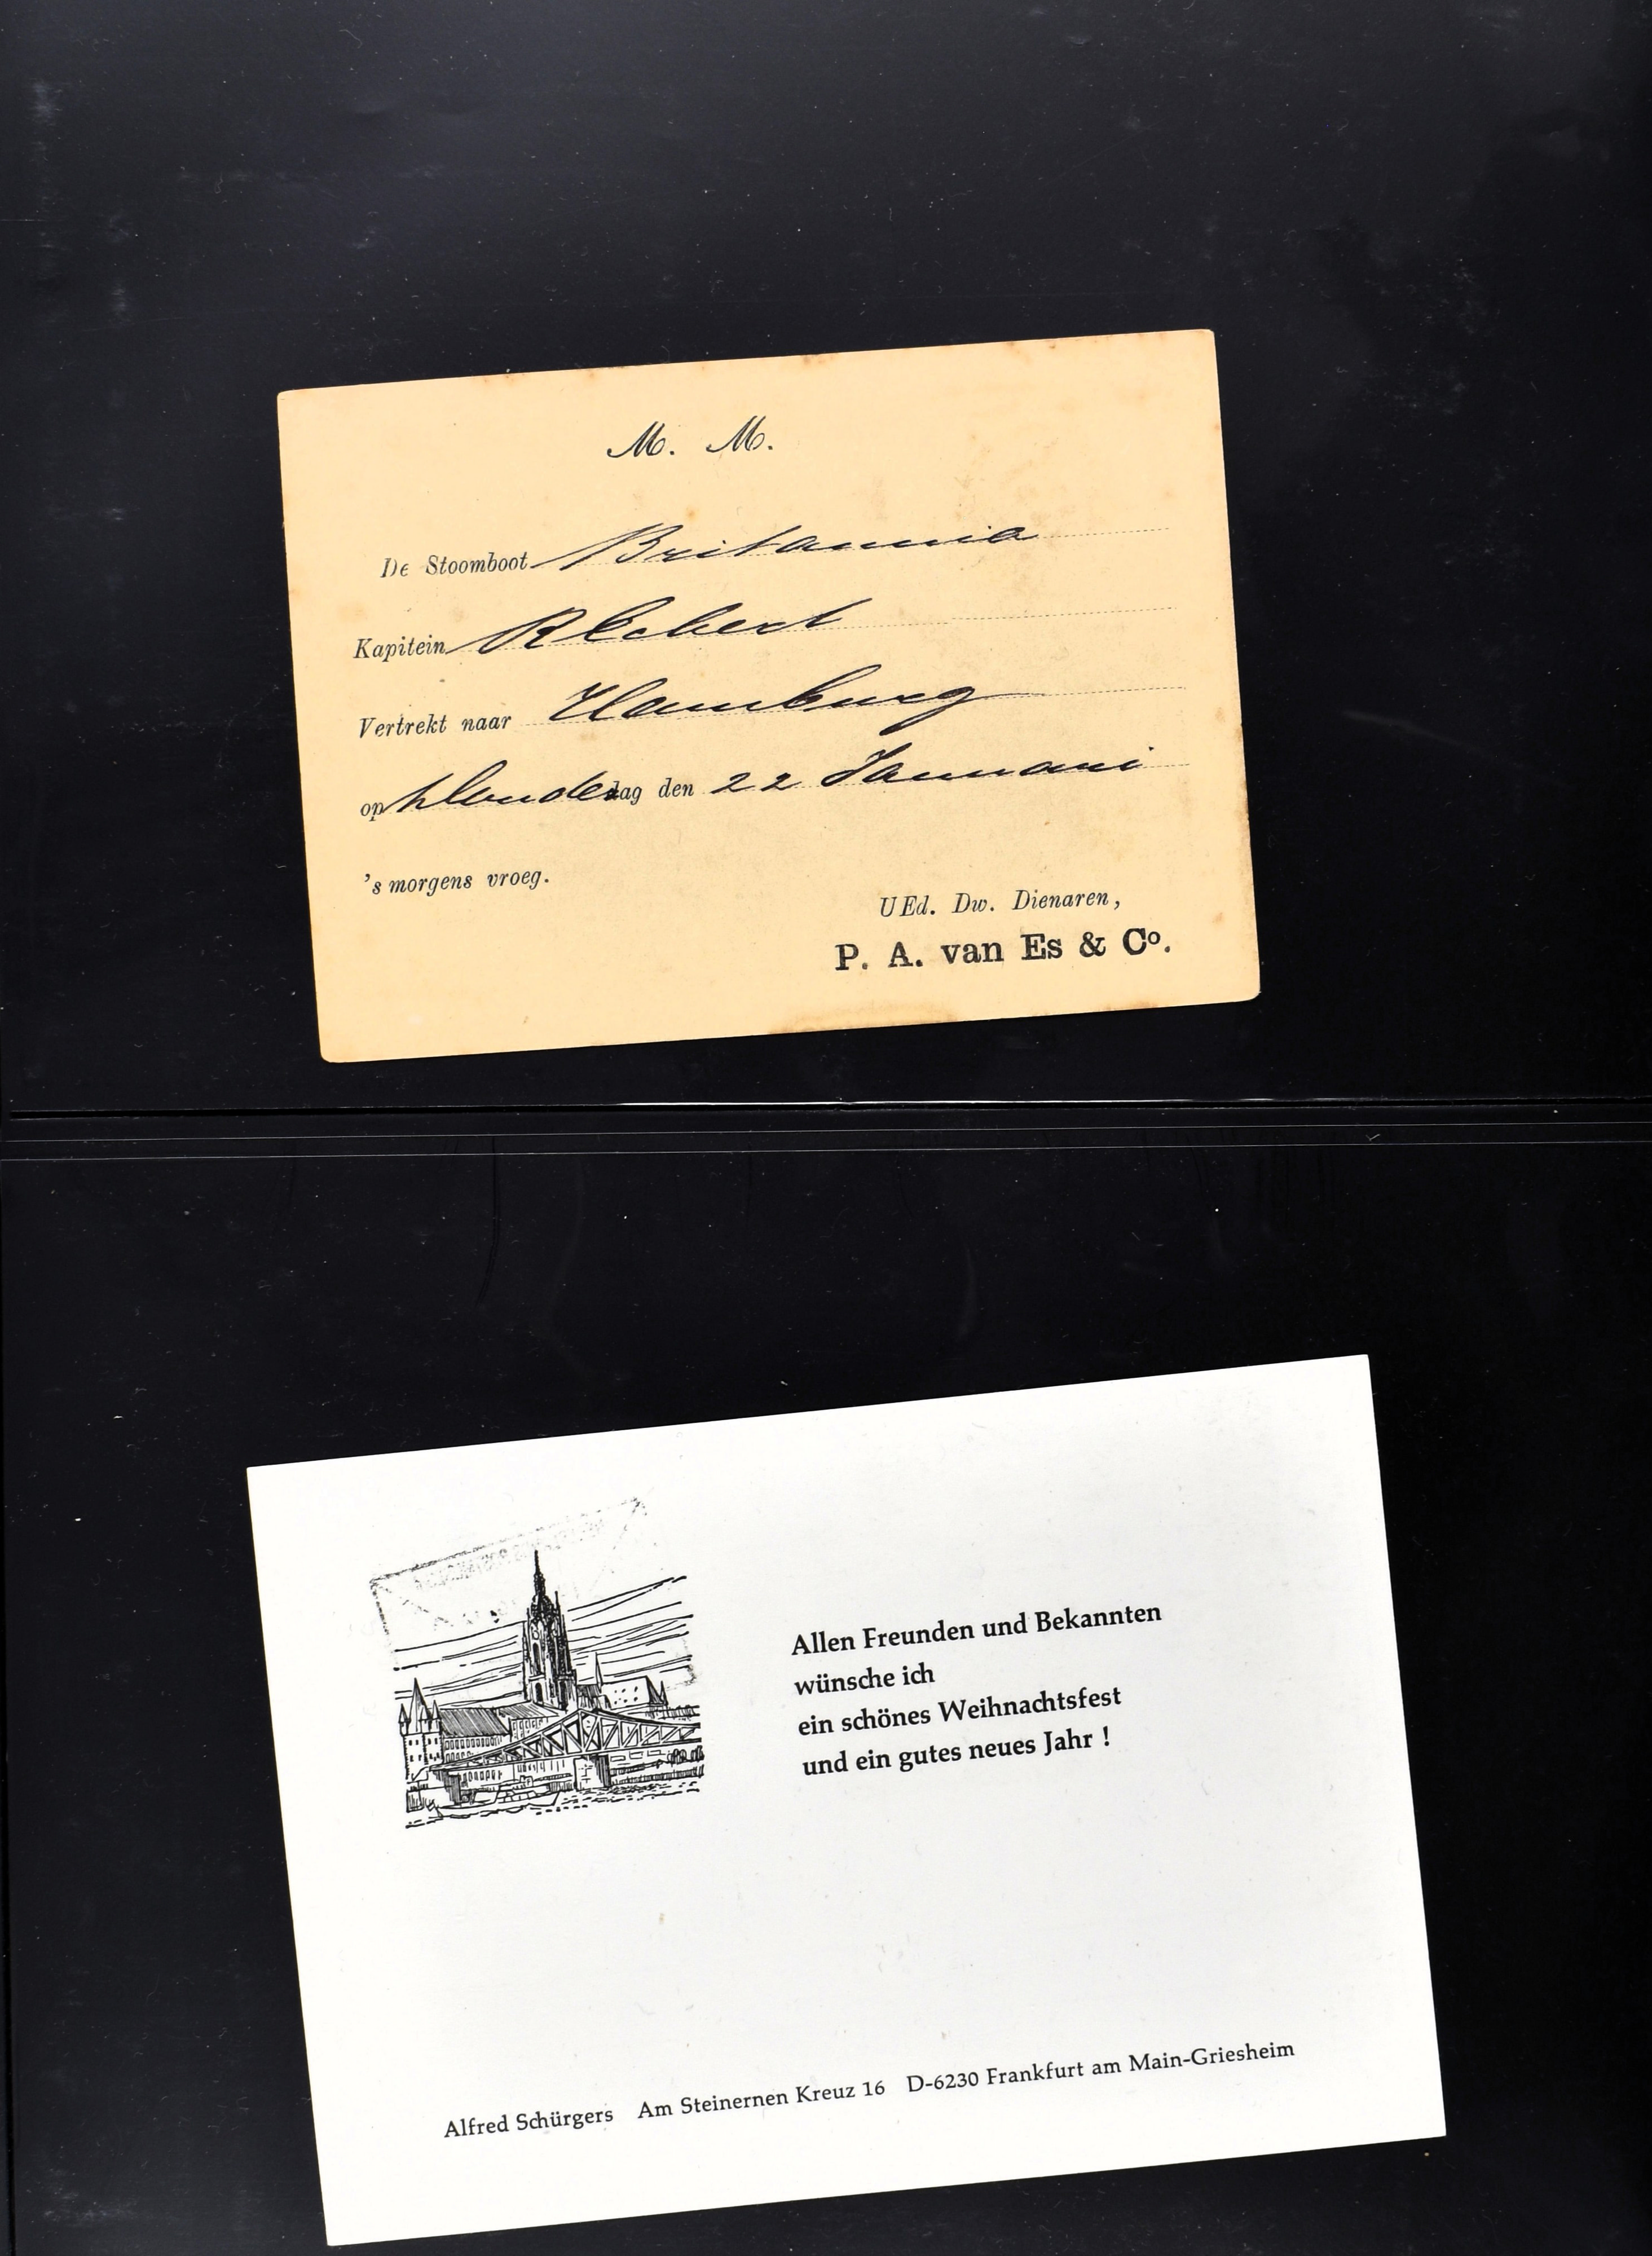 M. M.
De Stoomboot Britannia
Kapitein R Ecbert
Vertrekt naar Hamburg
op Donderdag den 22 Januari
's morgens vroeg.
UEd. Dw. Dienaren,
P. A. van Es & Co.
Allen Freunden und Bekannten
wünsche ich
ein schönes Weihnachtsfest
und ein gutes neues Jahr !
Alfred Schürgers Am Steinernen Kreuz 16 D-6230 Frankfurt am Main-Griesheim